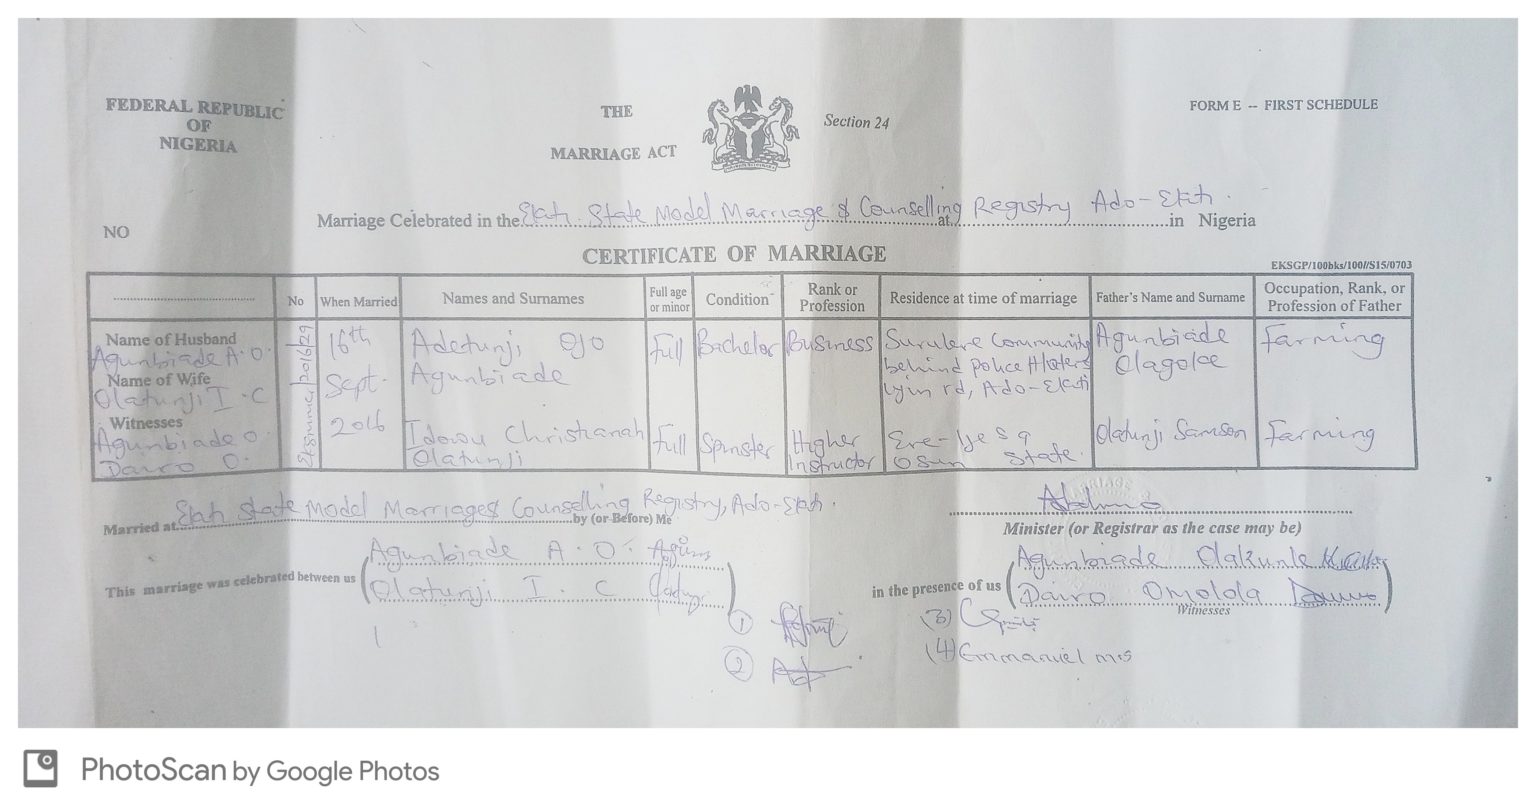 FEDERAL REPUBLIC
OF
NIGERIA
THE
MARRIAGE ACT
Section 24
FORM E -- FIRST SCHEDULE
NO
Marriage Celebrated in the Ekiti State Model Marriage & Counselling Registry Ado-Ekiti at in Nigeria
CERTIFICATE OF MARRIAGE
EKSGP/100bks/100//S15/0703
No
When Married
Names and Surnames
Full age or minor
Condition
Rank or Profession
Residence at time of marriage
Father's Name and Surname
Occupation, Rank, or Profession of Father
Name of Husband
Agunbiade A.O.
Name of Wife
Olatunji I.C
Witnesses
Agunbiade O.
Dairo O.
16th
Sept.
2016
Adetunji Ojo
Agunbiade
Full
Bachelor
Business
Surulere Community
behind Police
Iyin rd, Ado-Ekiti
Agunbiade
Farming
Idowu Christianah
Olatunji
Full
Spinster
Higher
Instructor
Osun State.
Olatunji Samson
Farming
Married at Ekiti State Model Marriage & Counselling Registry, Ado-Ekiti. by (or Before) Me
Minister (or Registrar as the case may be)
This marriage was celebrated between us
Agunbiade A.O.
Olatunji I. C
in the presence of us
Agunbiade Olakunle
Dairo Omolola
Witnesses
1
2
(3)
(4) Emmanuel
PhotoScan by Google Photos